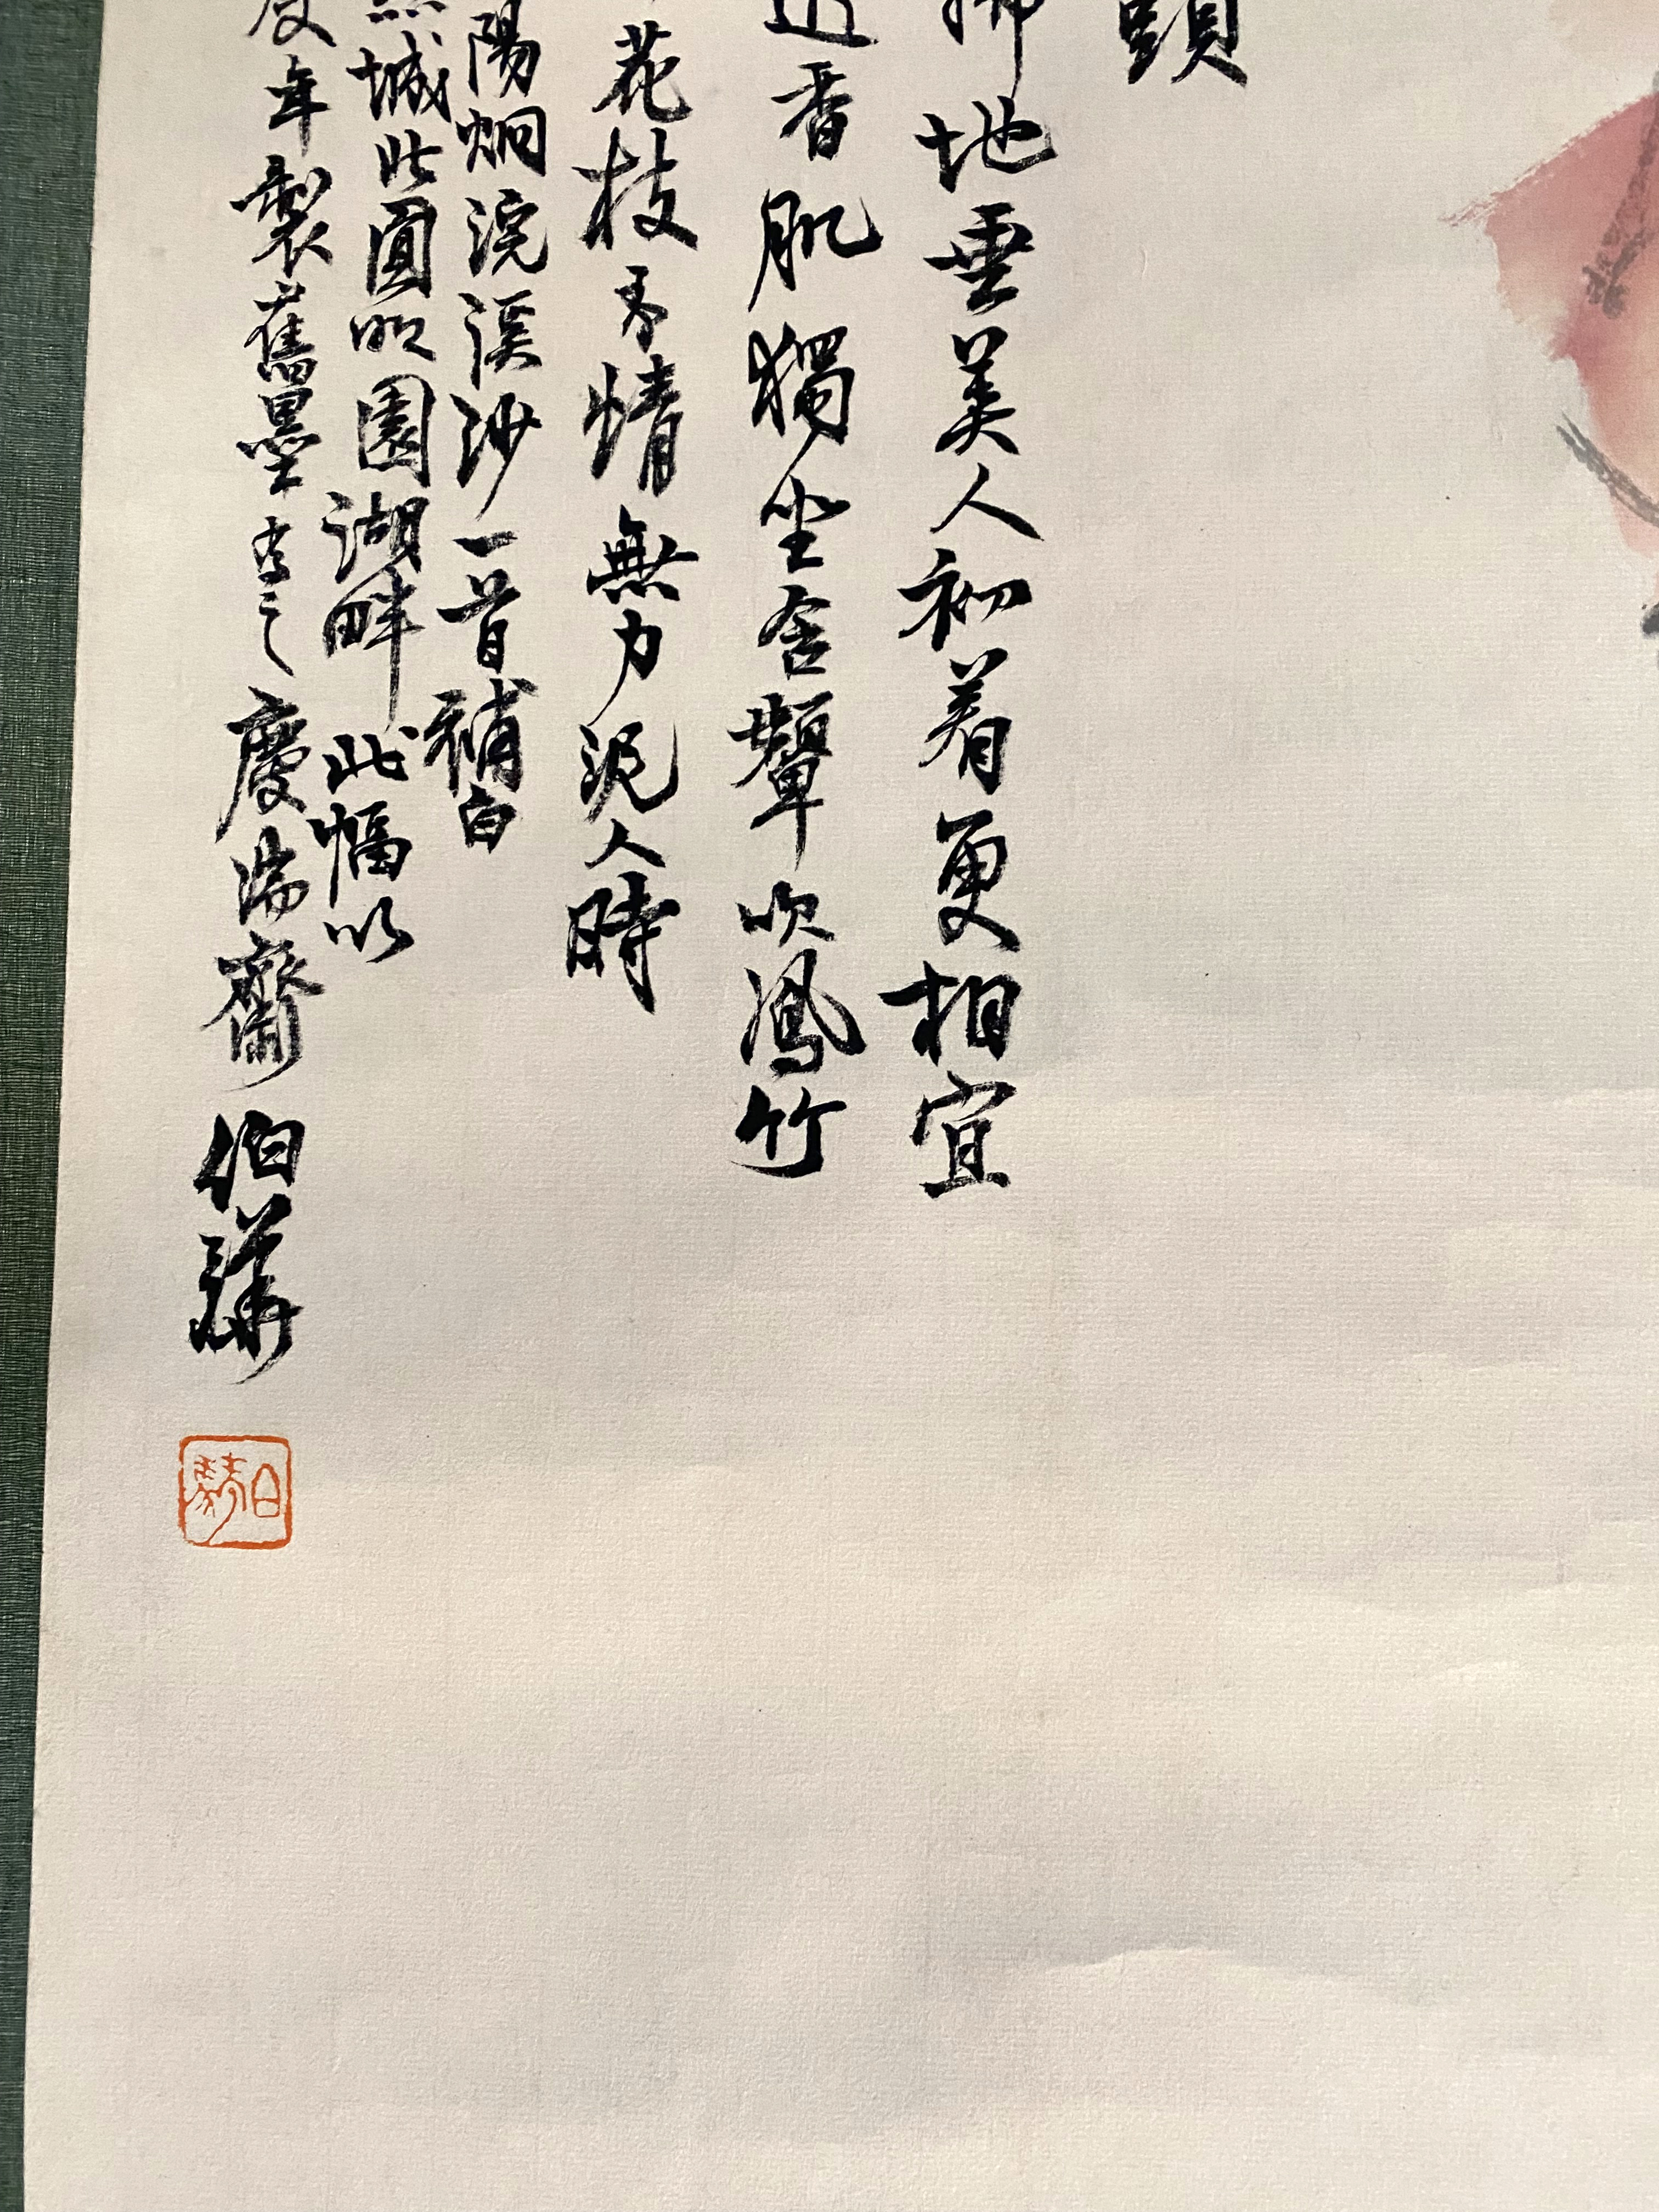 頭
拂地垂美人初着更相宜
透香肌獨坐含顰吹鳳竹
花枝有情無力泥人時
陽炯浣溪沙一首補白
城北圓明園湖畔此幅以
年製舊墨書之慶齋伯